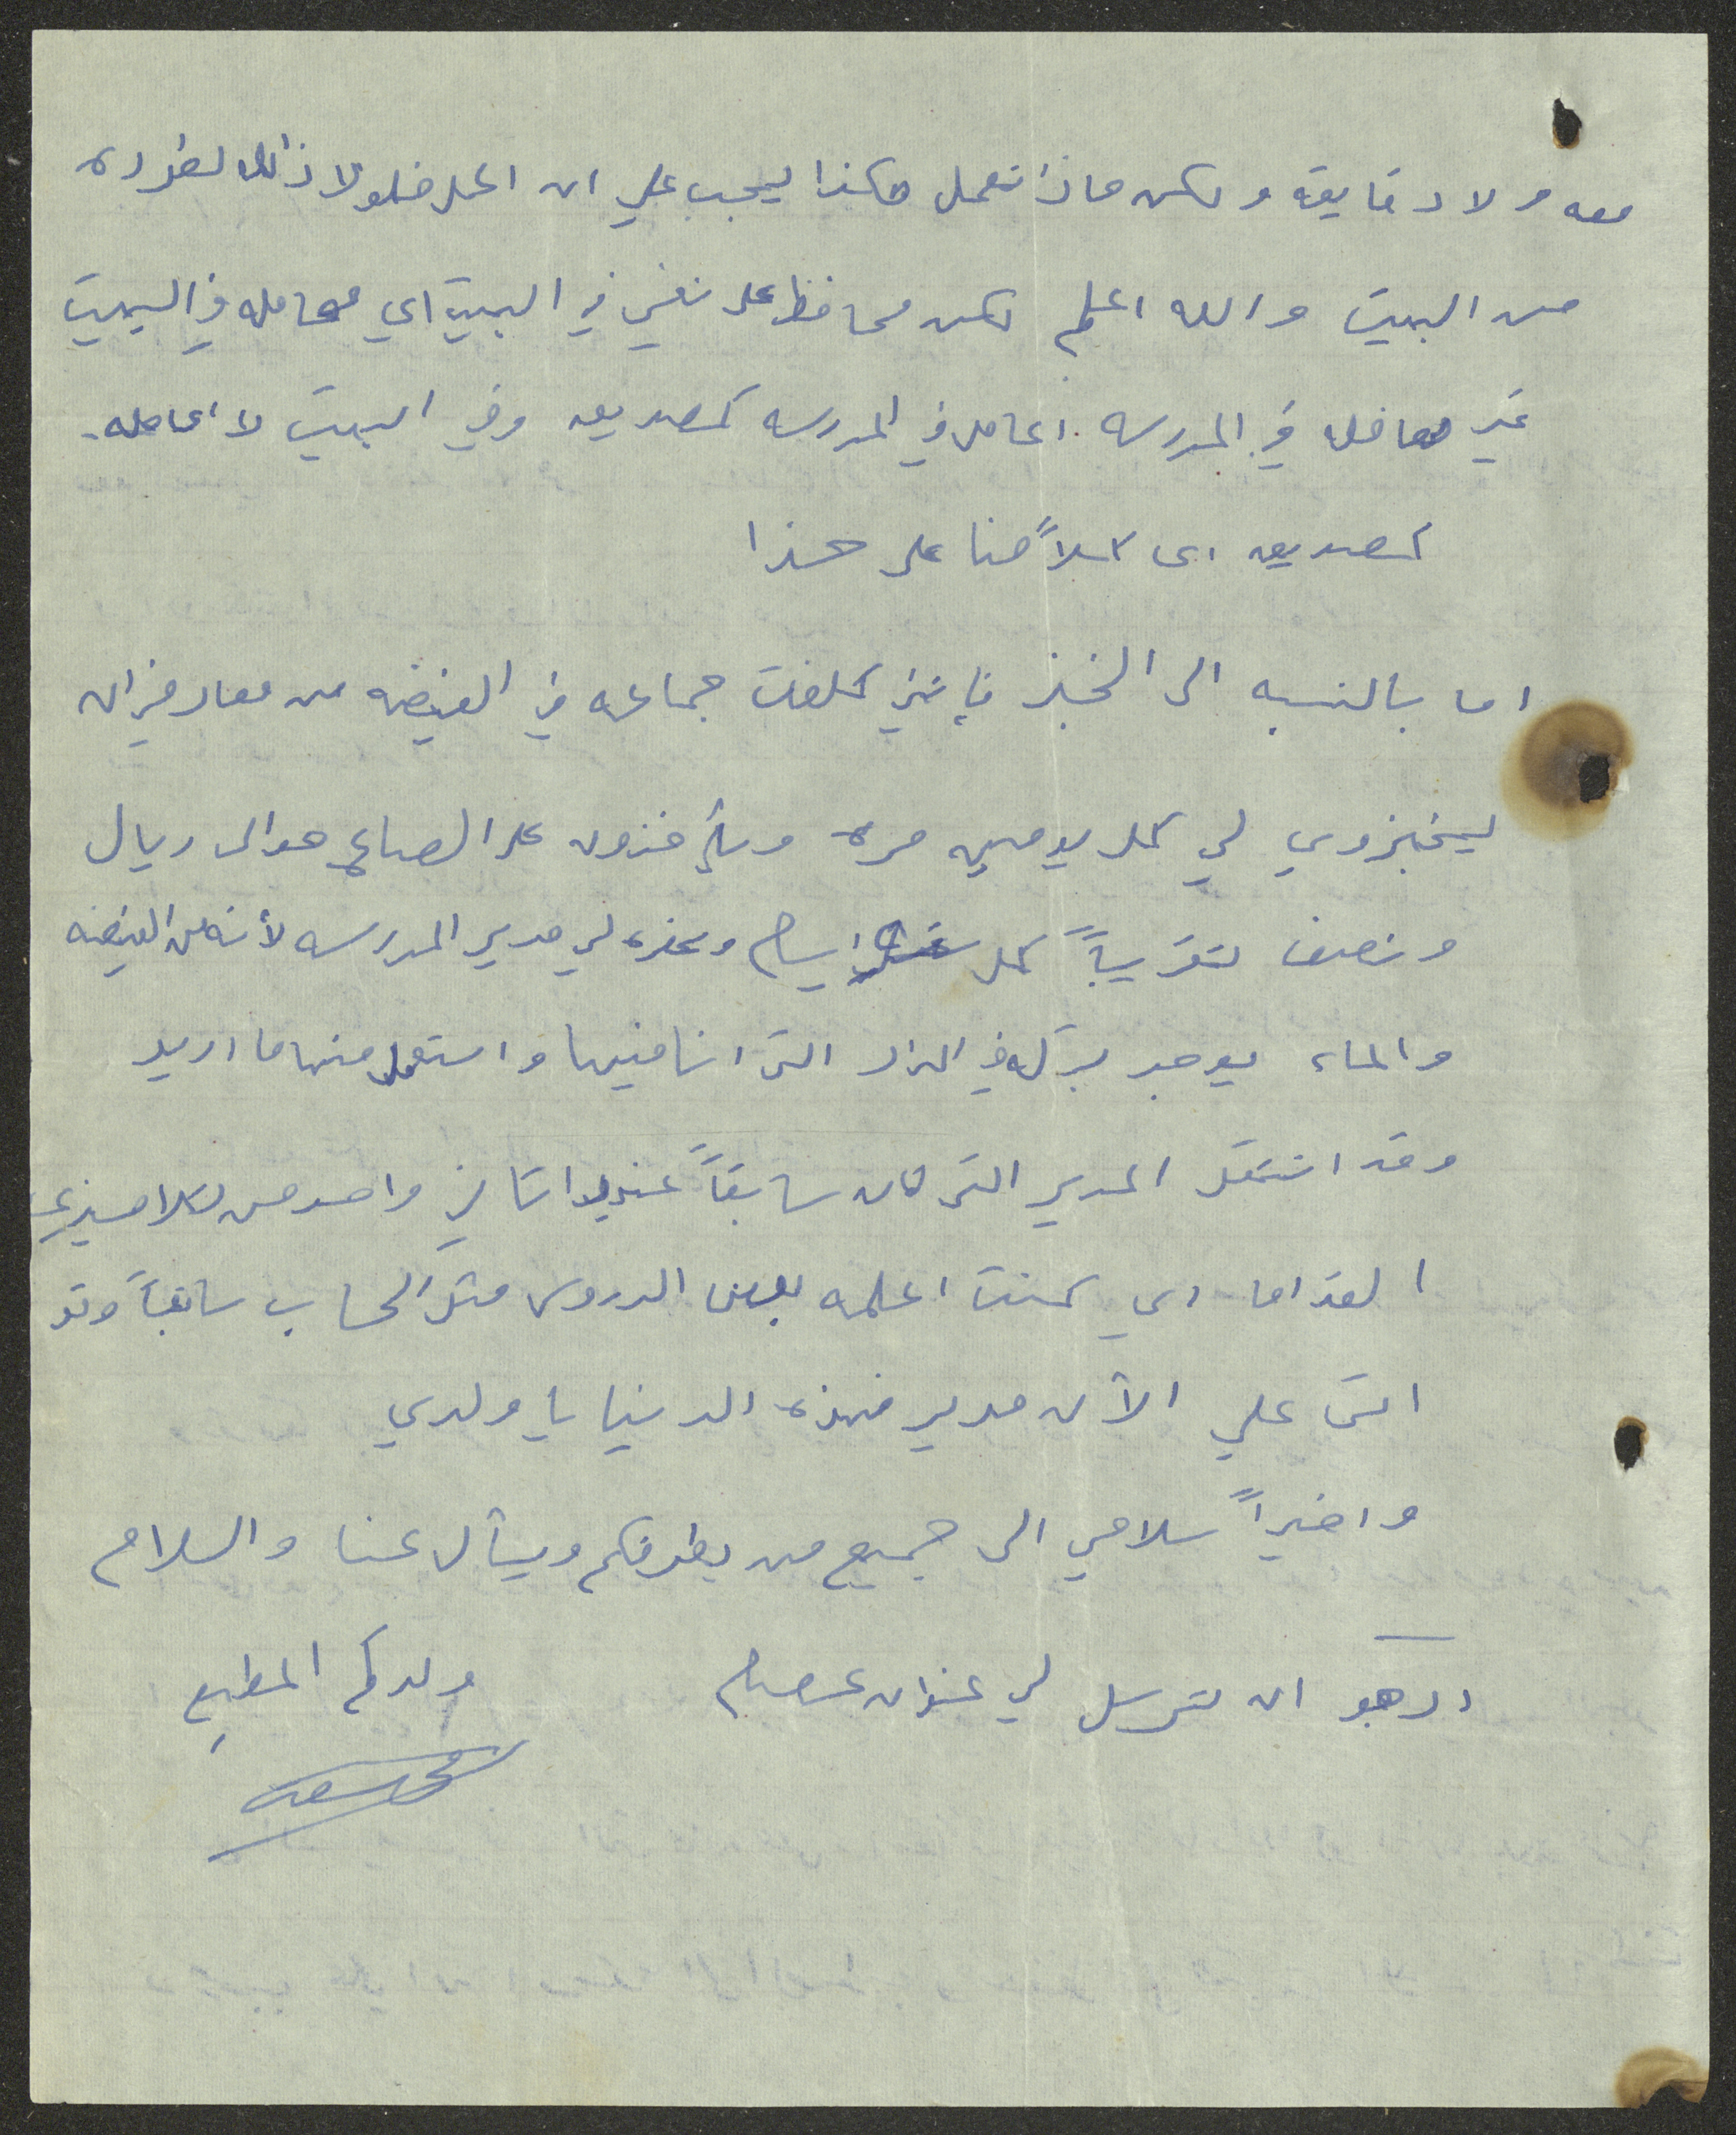 معه ولا دقايقه ولكن ماذا نعمل هكذا يجب علي ان اعمل فلولا ذالك لطرده
من البيت والله اعلم لكن محافظ على نفسي في البيت اي معامله في البيت
غير معامله في المدرسه اعامله في المدرسه كصديق وفي البيت لا اعامله
كصديق اي كلاً منا على حذا
اما بالنسبه الى الخبز فإنني كلفت جماعه في الفيضه من معارفي ان
يخبزوي لي كل يومين مره ويأخذون على الصاع حوالى ريال
ونصف تقريباً كل ايام لي مدير المدرسه لأنه من الفيضه
والماء يوجد بركه في الدار التى انا فيها واستعمل منها ما اريد
وقد انتقل المدير التى كان سابقاً واتانى واحد من تلاميذي
القداما اي كنت اعلمه بعض الدروس مثل الحساب سابقاً وقد
اتى علي الآن مدير فهذه الدنيا يا ولدي
واخيراً سلامي الى جميع من بطرفكم ويسأل عنا والسلام
ارجو ان ترسل لي عنوان عصام ولدكم المطيع